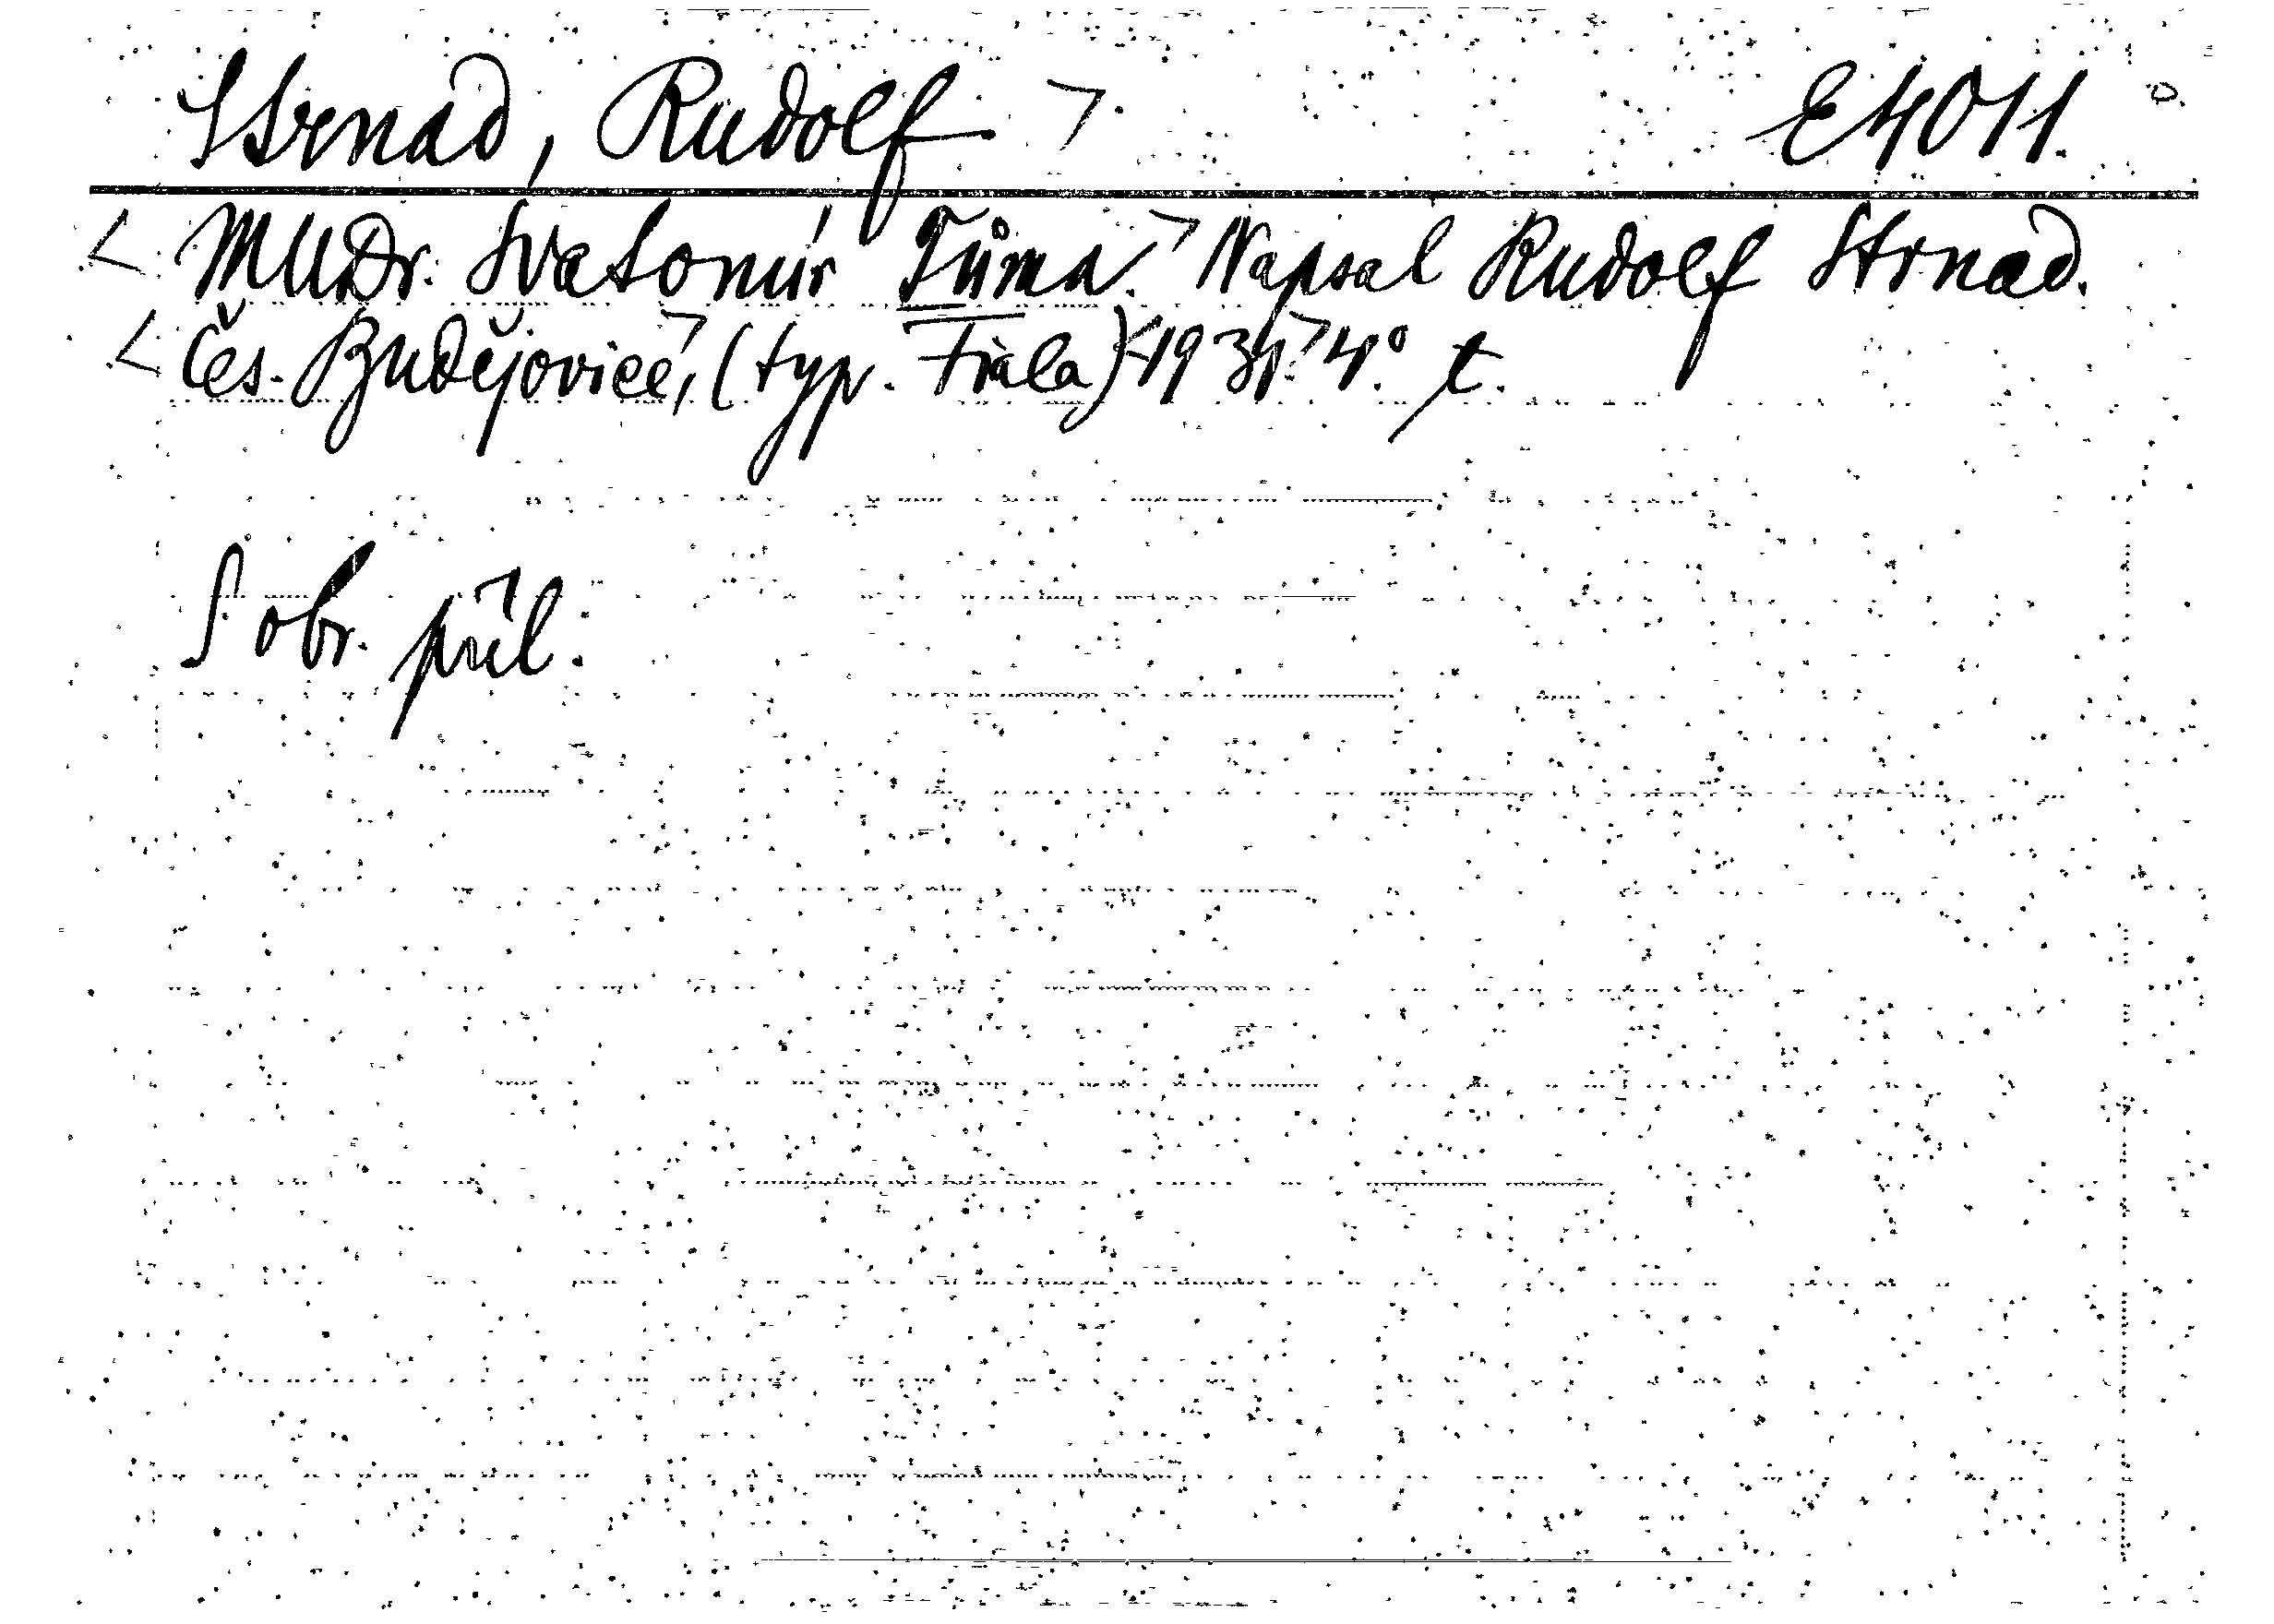 Strnad, Rudolf > E4011.
< MUDr. Svatomír Tůma. > Napsal Rudolf Strnad.
< Čes. Budějovice, > (typ. Fiala) < 1934. > 4.° t.
S obr. příl.